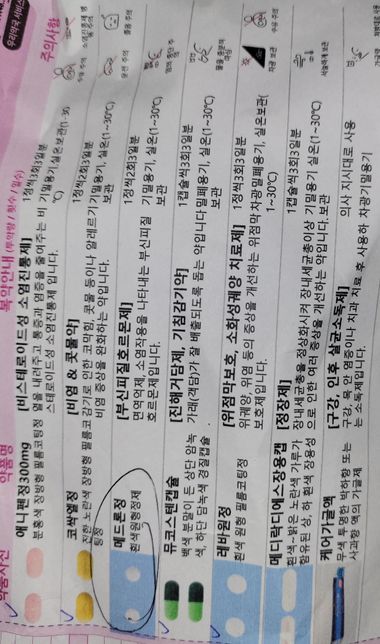 우리약국 서비스
주의사항
복약안내 (투약량 / 횟수 / 일수)
약품명
약품사진
에니펜정300mg
분홍색 장방형 필름코팅정
[비스테로이드성 소염진통제]
1정씩3회3일분
열을 내려주고, 통증과 염증을 줄여주는 비
스테로이드성 소염진통제 입니다.
기밀용기,실온보관(1~30
℃)
코싹엘정
진한 노란색 장방형 필름코
팅정
[비염 & 콧물약]
1정씩2회3일분
감기로 인한 코막힘, 콧물 등이나 알레르기
비염 증상을 완화하는 약입니다.
기밀용기, 실온(1~30℃)
보관
메드론정
흰색 원형정제
[부신피질호르몬제]
1정씩2회3일분
면역억제,소염작용을 나타내는 부신피질
호르몬제입니다.
기밀용기, 실온(1~30℃)
보관
뮤코스텐캡슐
백색 분말이 든 상단 담녹
색, 하단 담녹색 경질캡슐
[진해거담제, 기침감기약]
1캡슐씩3회3일분
가래(객담)가 잘 배출되도록 돕는 약입니다
밀폐용기, 실온(1~30℃)
보관
레바원정
흰색 원형 필름코팅정
[위점막보호, 소화성궤양 치료제]
1정씩3회3일분
위궤양, 위염 등의 증상을 개선하는 위점막
보호제입니다.
차광밀폐용기, 실온보관(
1~30℃)
메디락디에스장용캡
흰색~밝은 노란색 가루가
함유된 상, 하 흰색 장용성
[정장제]
1캡슐씩3회3일분
장내세균총을 정상화시켜 장내세균총이상
으로 인한 여러 증상을 개선하는 약입니다.
기밀용기 실온(1~30℃)
보관
케어가글액
무색 투명한 박하향 또는
사과향 액의 가글제
[구강, 인후 살균소독제]
의사 지시대로 사용
구강, 목 안 염증이나 치과 치료 후 사용하
는 소독제입니다.
차광기밀용기